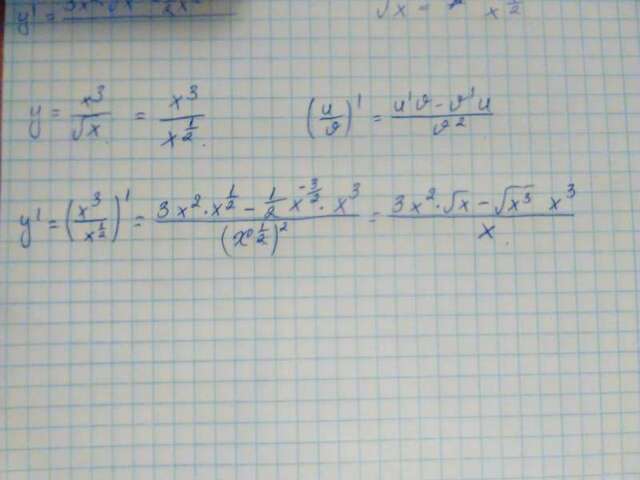 √x = x^{1/2}
y = x³/√x = x³/x^{1/2} (u/v)' = (u'v - v'u)/v²
y' = (x³/x^{1/2})' = (3x² · x^{1/2} - 1/2 x^{-3/2} · x³)/(x^{1/2})² = (3x² · √x - √x³ x³)/x